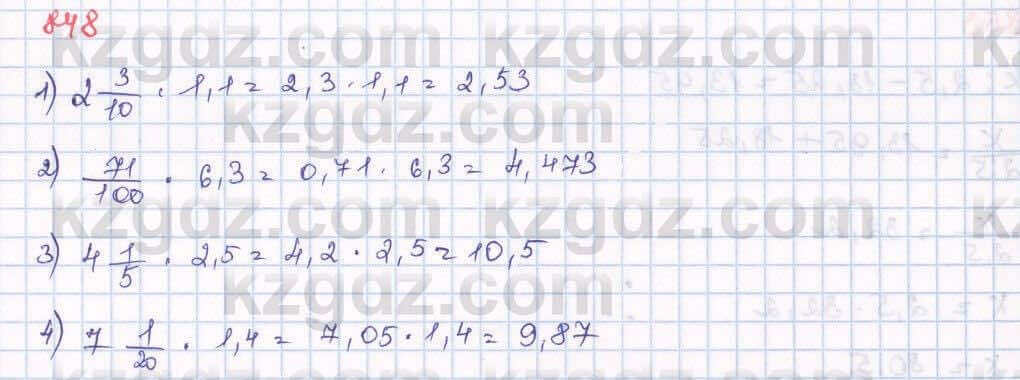 848
kzgdz.com kzgdz.com
1) 2 3/10 · 1,1 = 2,3 · 1,1 = 2,53
kzgdz.com
2) 71/100 · 6,3 = 0,71 · 6,3 = 4,473
kzgdz.com kzgdz.com
3) 4 1/5 · 2,5 = 4,2 · 2,5 = 10,5
kzgdz.com
4) 7 1/20 · 1,4 = 7,05 · 1,4 = 9,87
kzgdz.com kzgdz.com